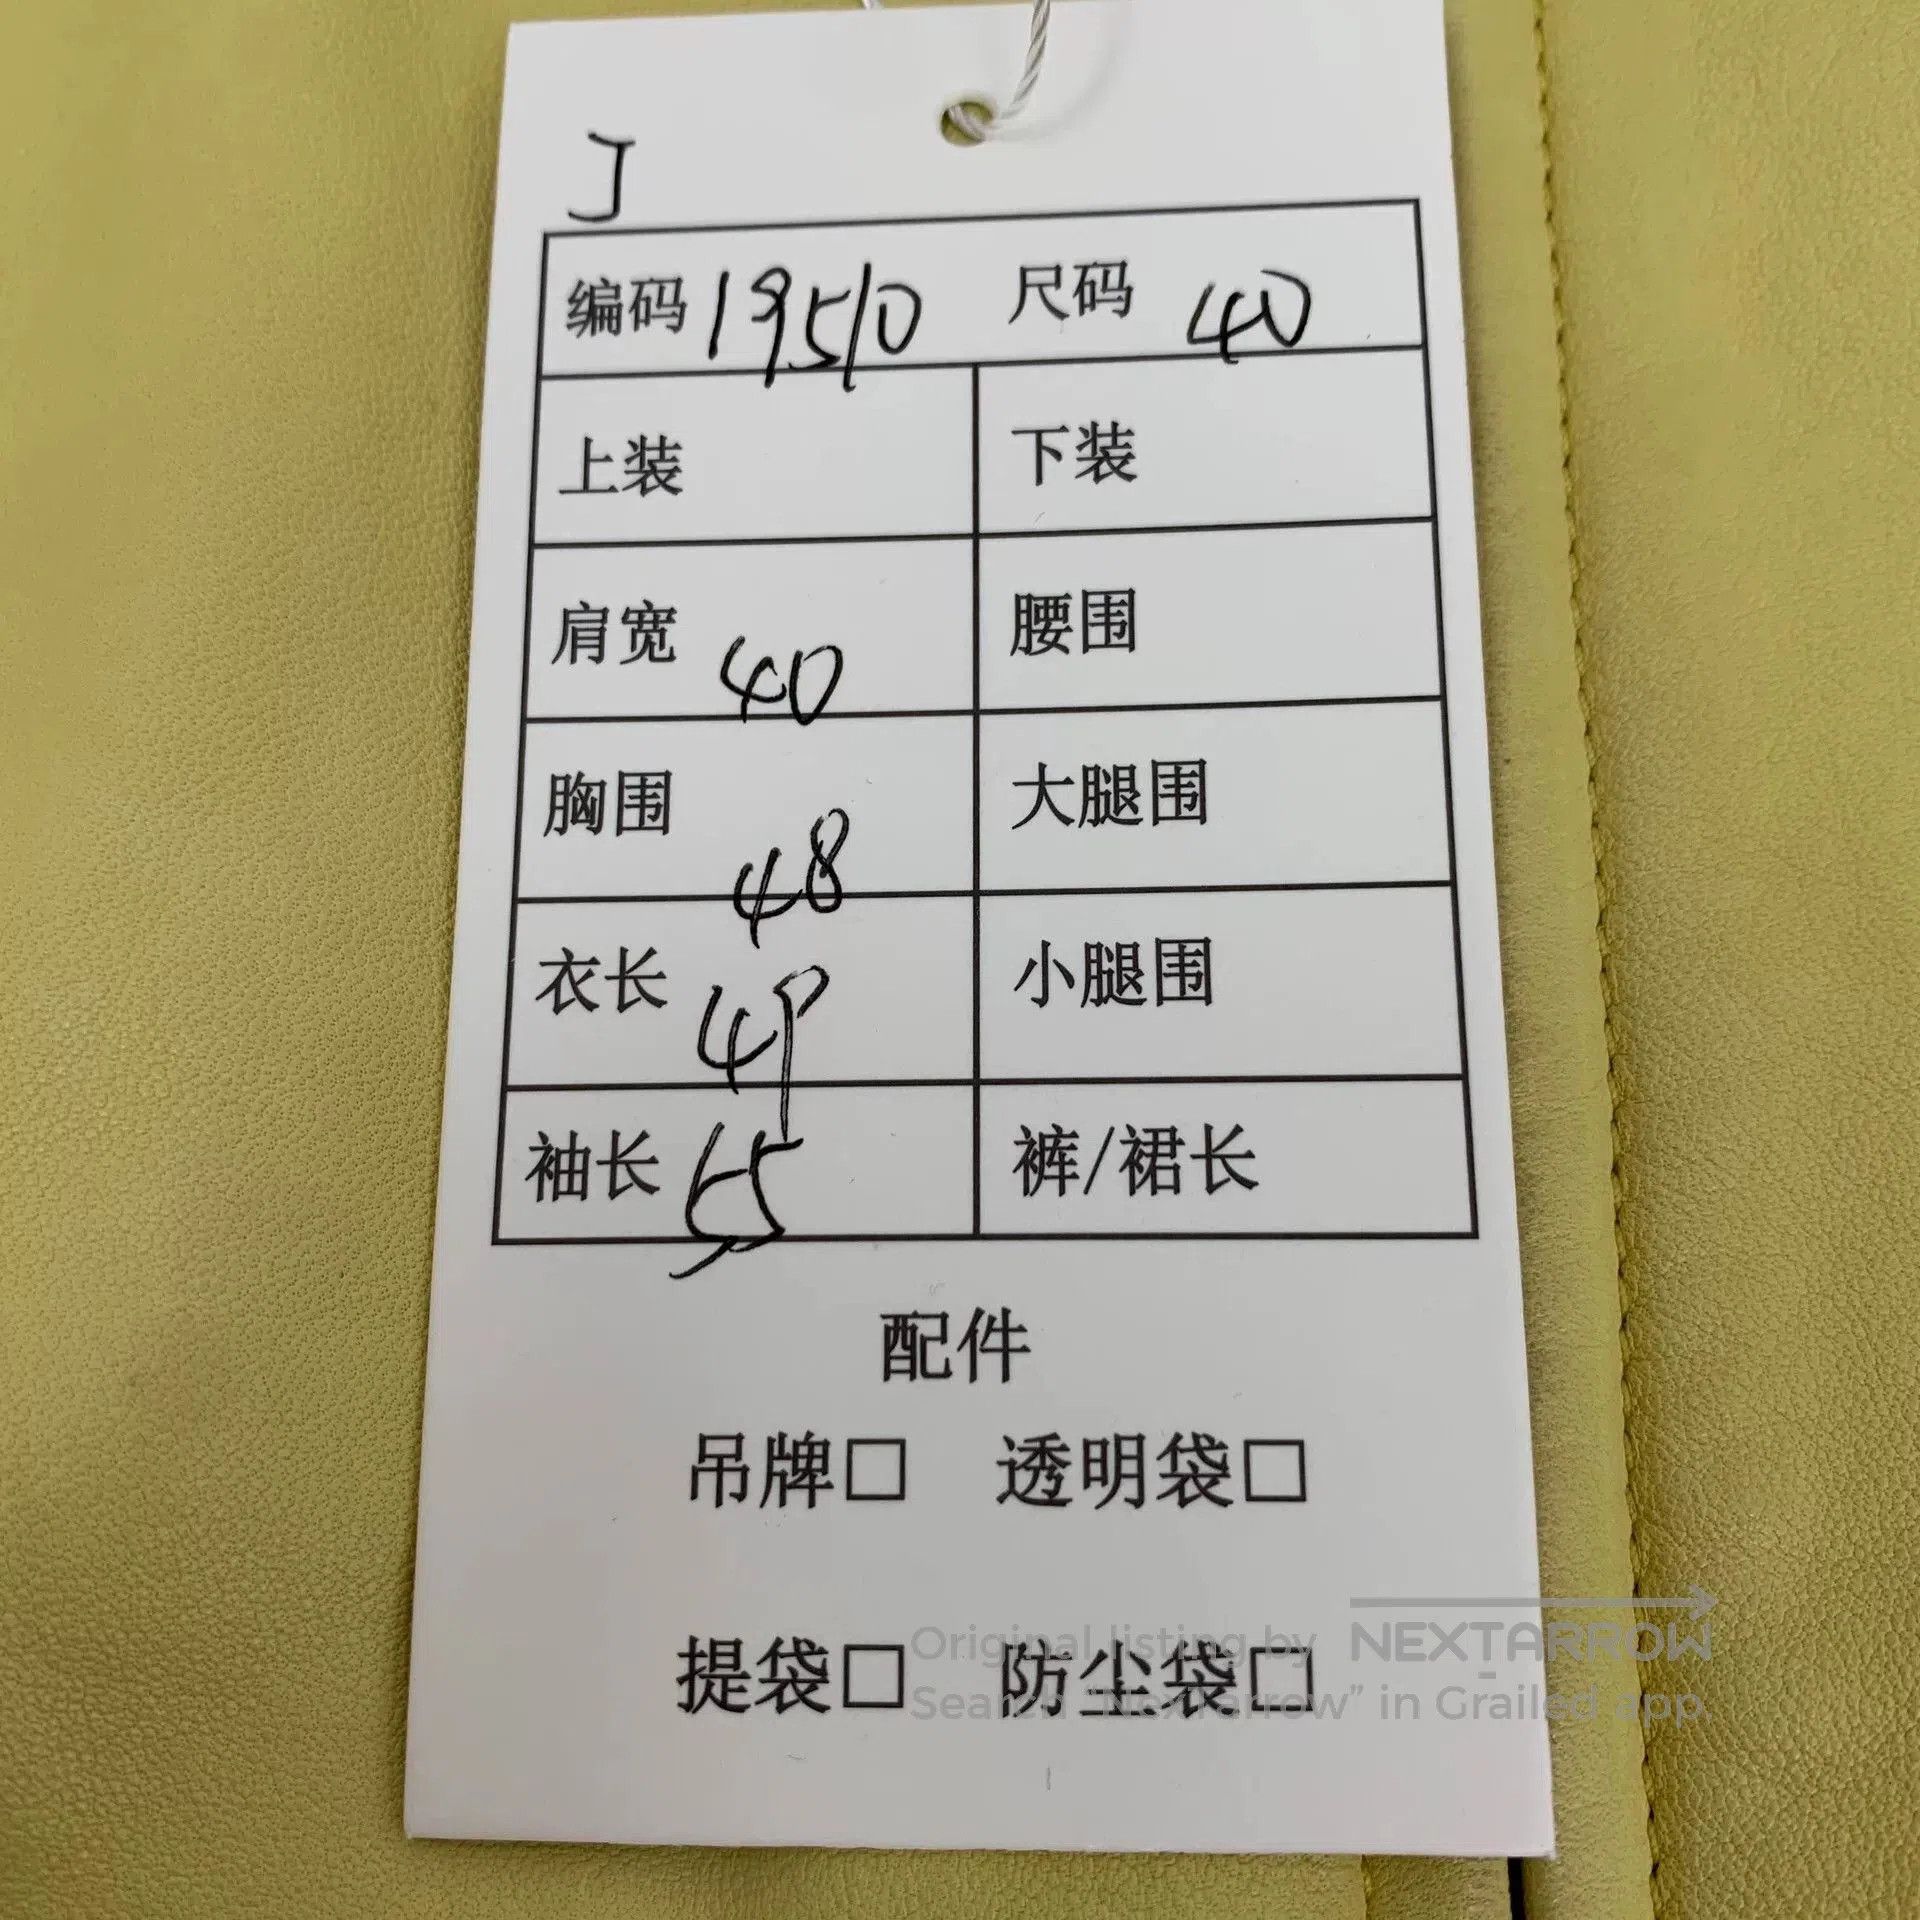 J
编码 19510 尺码 40
上装 下装
肩宽 40 腰围
胸围 48 大腿围
衣长 49 小腿围
袖长 55 裤/裙长
配件
吊牌□ 透明袋□
提袋□ 防尘袋□
Original listing by NEXTARROW
Search "NexTarrow" in Grailed app.